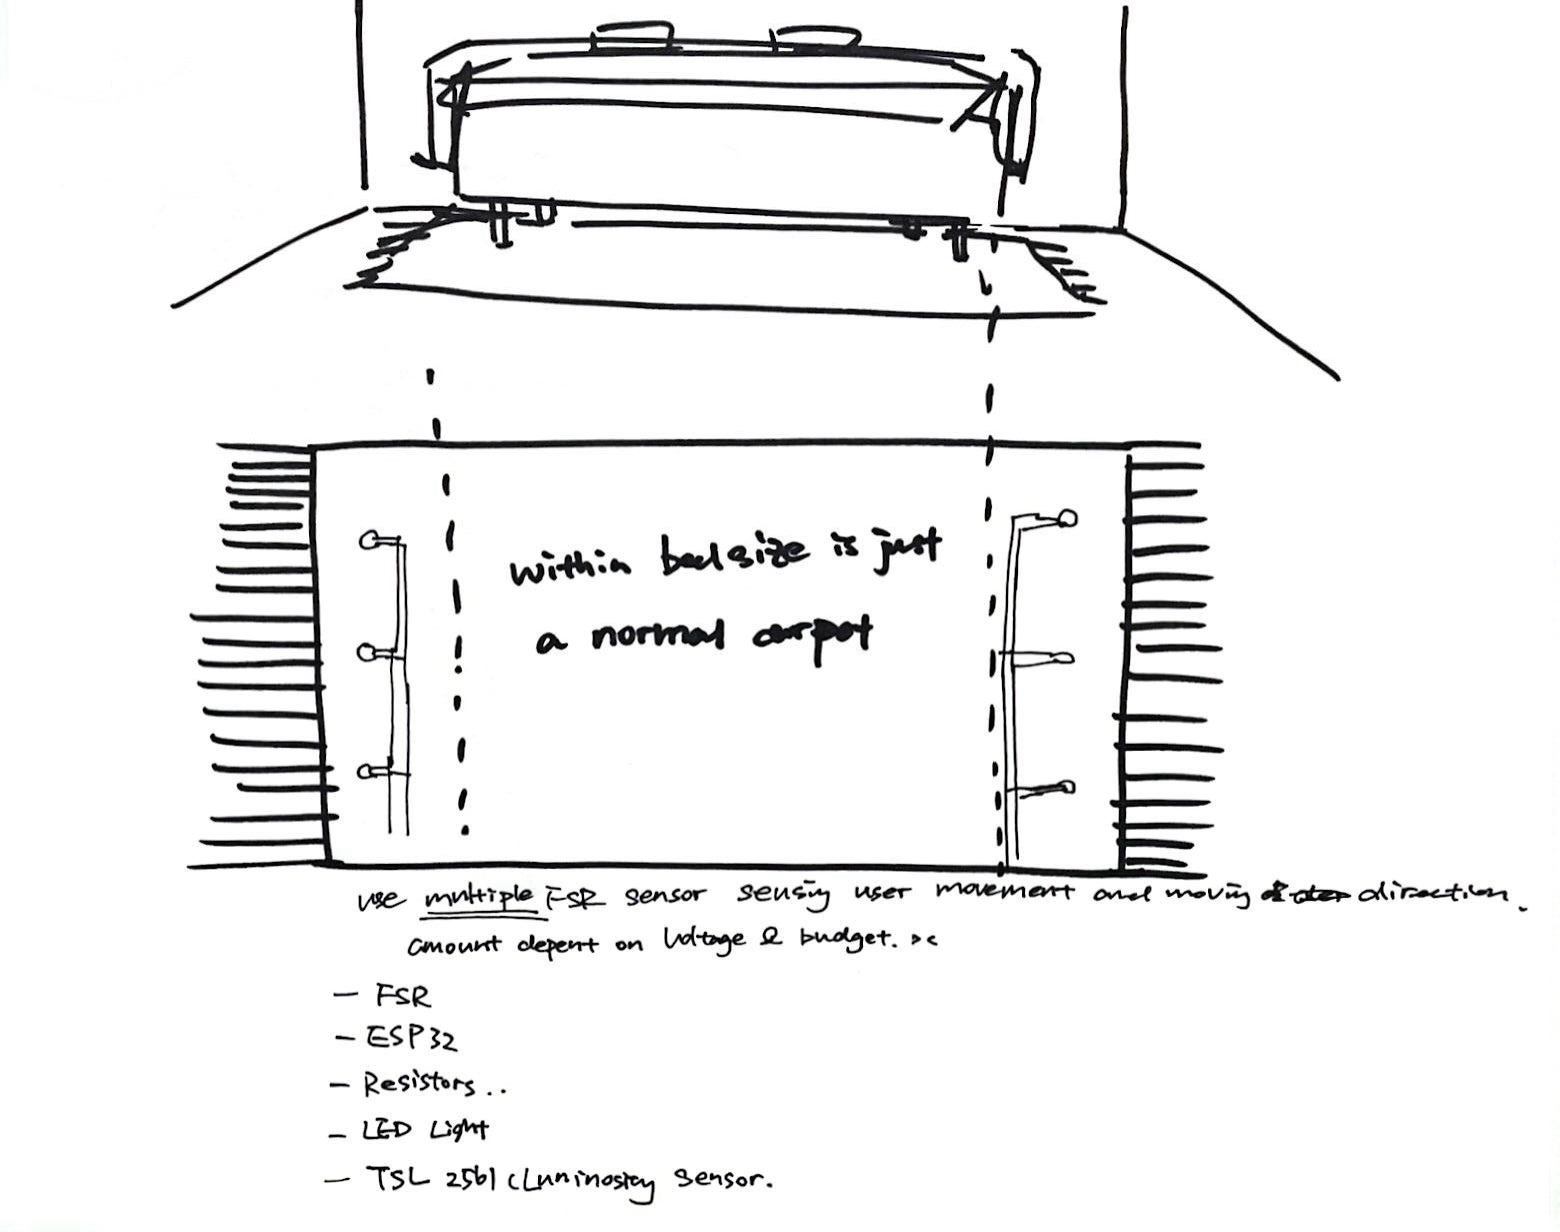 within bedsize is just
a normal carpet
use multiple FSR sensor sensing user movement and moving direction.
amount depent on Voltage & budget.
- FSR
- ESP32
- Resistors..
- LED Light
- TSL 2561 (Luninosity sensor.